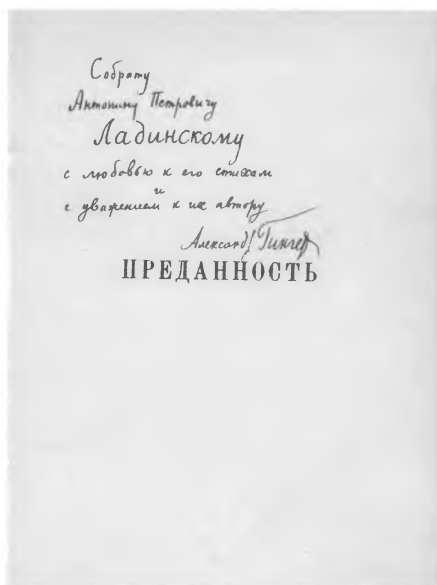 Собрату
Антонину Петровичу
Ладинскому
с любовью к его стихам
и
с уважением к их автору
Александр Гингер
ПРЕДАННОСТЬ